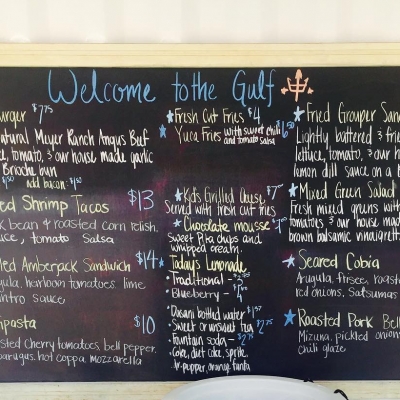 Welcome to the Gulf
urger $7.75
atural Meyer Ranch Angus Beef
e, tomato, & our house made garlic
Brioche bun
add bacon $.50
ed Shrimp Tacos $13
k bean & roasted corn relish,
uce, tomato salsa
led Amberjack Sandwich $14
gula, heirloom tomatoes lime
ntro sauce
ipasta $10
sted Cherry tomatoes, bell pepper,
paragus, hot coppa, mozzarella
Fresh Cut Fries $4
Yuca Fries with sweet chili and tomato salsa $6.50
Kids Grilled Cheese $7
Served with fresh cut fries
Chocolate mousse
Sweet Pita chips and
whipped cream.
Today's Lemonade
Traditional -
Blueberry -
Dasani bottled water
Sweet or unsweet tea $2.75
Fountain soda - $2.75
Coke, diet coke, sprite,
dr. pepper, orange fanta
Fried Grouper San
Lightly battered & frie
lettuce, tomato, & our h
lemon dill sauce on a B
Mixed Green Salad
Fresh mixed greens with
tomatoes & our house mad
brown balsamic vinaigrett
Seared Cobia
Arugula, frisee, roast
red onions, Satsumas
Roasted Pork Bell
Mizuna, pickled onion
chili glaze